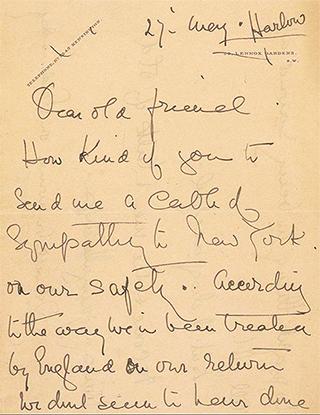 27th May. Harlow
TELEPHONE, KENSINGTON.
LENNOX GARDENS,
S.W.
Dear old friend.
How Kind of you to
send me a Cable of
Sympathy to New York.
on our safety.. According
to the way we've been treated
by England on our return
we dont seem to have done